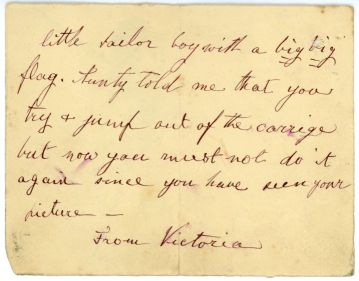 little sailor boy with a big big
flag. Aunty told me that you
try & jump out of the carrige
but now you must not do it
again since you have seen your
picture —
From Victoria